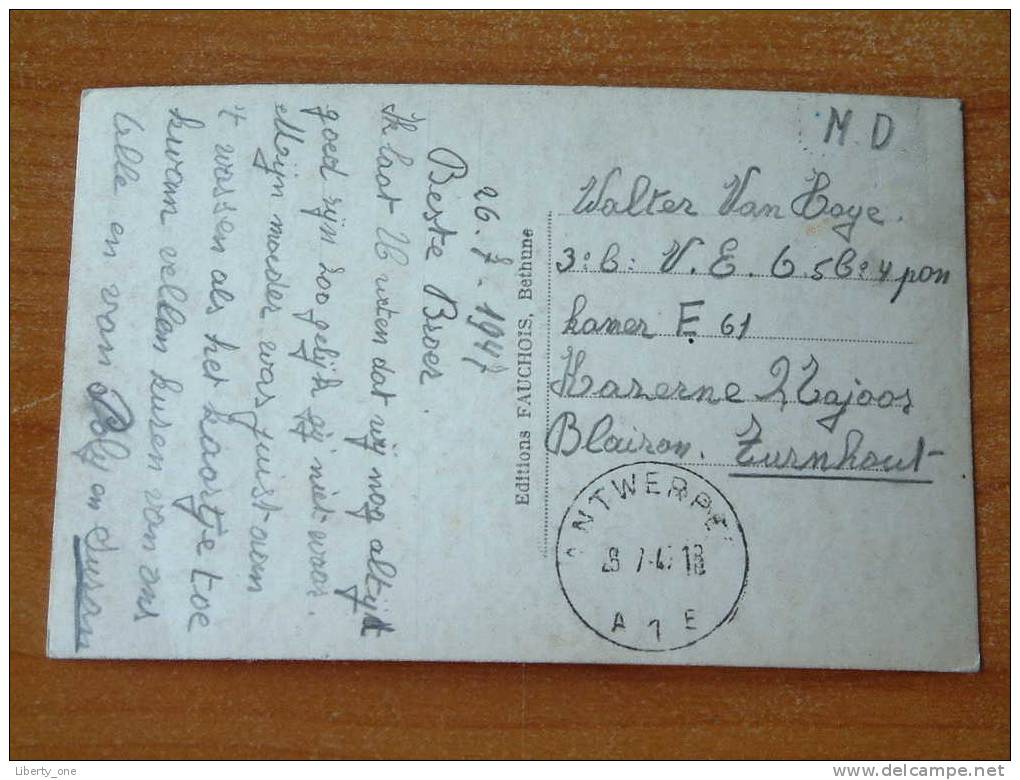 26.7.1947
Beste Broer
Ik laat U weten dat wij nog altijt
goed zijn zoo gelijk gij niet waar.
Mijn moeder was juist aan
't wassen als het kaartje toe
kwam vellen kusen van ons
alle en van Poly en Susan
Editions FAUCHOIS, Bethune
M.D
Walter Van
V.E. 4 pon
kamer E 61
Kazerne
Blairon. Turnhout
ANTWERPE
7.4 18
A 1 E
Liberty_one
delcampe.net